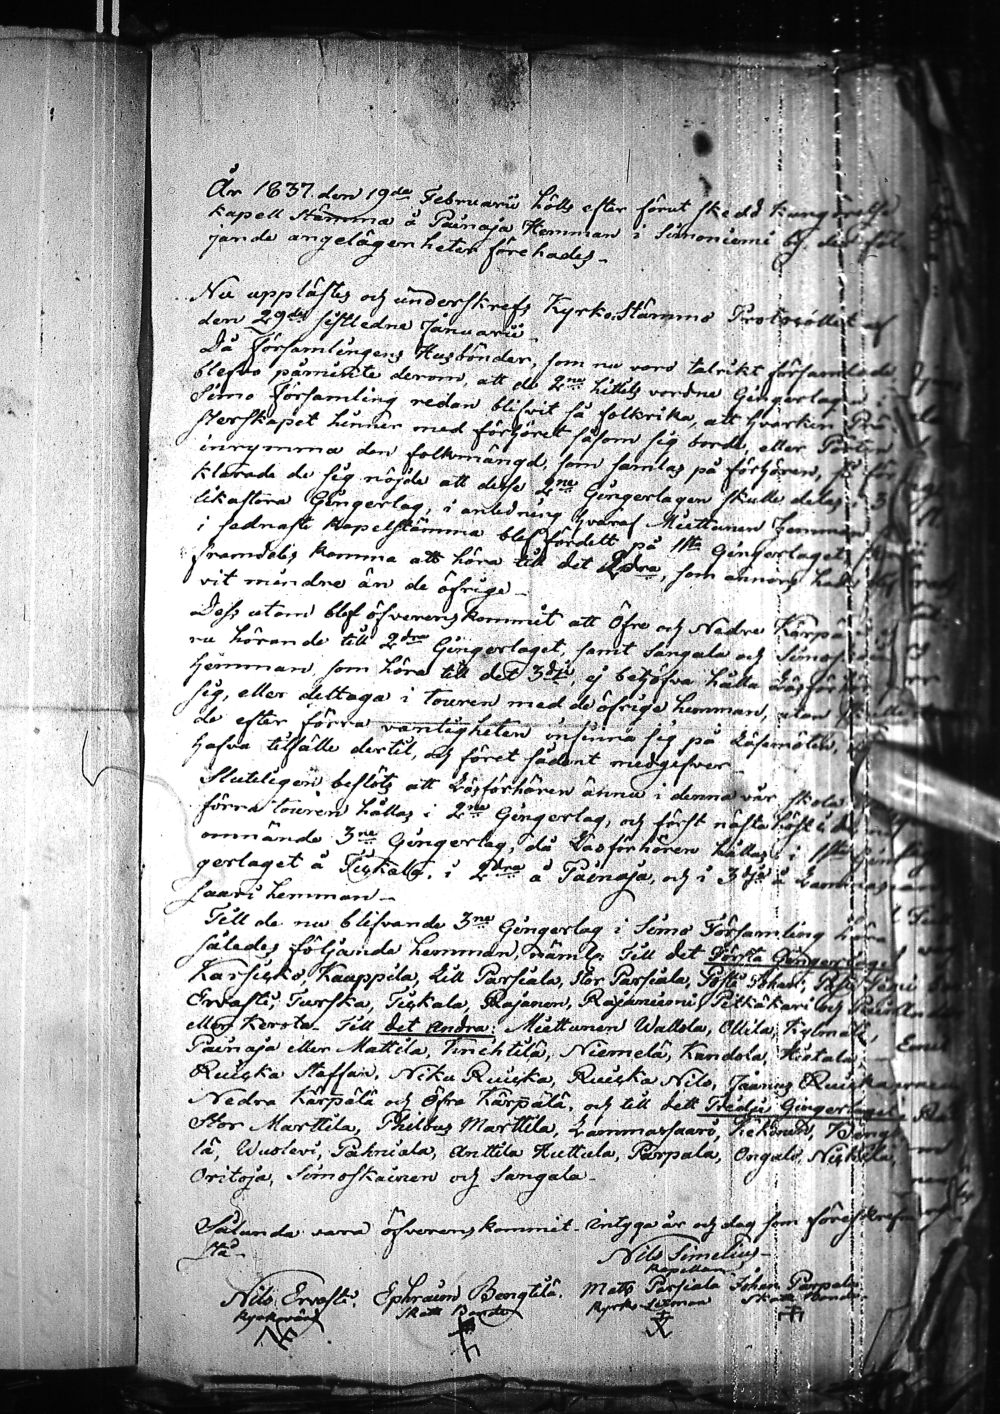 År 1837. den 19de Februarii hölls efter förut skedd kungörelse
kapell Stämma å Painaja Hemman i Simoniemi by, der föl
jande angelägenheter förehades_
Nu upplästes och underskrefs Kyrko Stämmo Protocollet af
den 29de sistledne Januarii_
Då Församlingens Husbönder, som nu voro talrikt församlade
blefvo påminte derom, att de 2ne hittils vordne Gingerlagen i
Simo Församling redan blifvit så folkrika, att hvarken Prä
sterskapet hinner med förhöret såsom sig borde, eller Pörten
inrymma den folkmängd, som samlas på förhören, så för
klarade de sig nöjde att desse 2ne Gingerlagen skulle delas i 3
lika stora Gingerlag, i anledning hvaraf Miettunen hemman
i sednaste kapellstämma blef fördelt på 1sta Gingerlaget,
framdeles komma att höra till det 2dra, som annors hade blif
vit mindre än de öfrige_
Dess utom blef öfverenskommit att Öfre och Nedre Kärpä
nu hörande till 2dra Gingerlaget, samt Sangala och Simoskainen
Hemman som höra till det 3dje, ej behöfva hålla Läsförhör
sig, eller deltaga i touren med de öfrige hemman, utan skulle
de efter förra vanligheten infinna sig på Läsemöten,
hafva tillfälle dertil, och föret sådant medgifver_
Sluteligen beslöts att Läsförhören ännu i denna vår skola
förra touren hållas i 2ne Gingerlag, och först nästa höst i de
omnämnde 3ne Gingerlag, då Läsförhören hållas i 1sta Gin
gerlaget å Tiskala, i 2dra å Painaja, och i 3dje å Lammas
saari hemman_
Till de nu blifvande 3ne Gingerlag i Simo Församling höra
således följande hemman, näml: Till det Första Gingerlaget
Karsikko, Kaappila, Lill Parsiala, Stor Parsiala,
Ervasti, Turska, Tiskala, Rajanen, Rajaniemi, Pitkäkari och
eller Kersta_ Till det Andra: Miettunen Wallola, Ollila, Kylmälä,
Painaja eller Mattila, Kinchtilä, Niemelä, Kandola, Hietala,
Ruiska Staffan, Niku Ruiska, Ruiska Nils, Jaanus Ruiska
Nedra Kärpälä och Öfra Kärpälä, och till dett Tredje Gingerlaget
Stor Marttila, Philpus Marttila, Lammassaari, Kekonen, Bengti
lä, Wuolevi, Pahniala, Anttila Huttula, Parpala, Ongalo, Niskala,
Oritoja, Simoskainen och Sangala_
Sålunda vara öfverenskommit_ intyga år och dag som föreskrefvet
stå_
Nils Simelius_
Kapellan_
Nils Ervasti, Ephraim Bengtilä. Matts Parsiala Johan Parpala
Kyrkovärd Skatt Bonde Kyrko Sexman Skatt Bonde